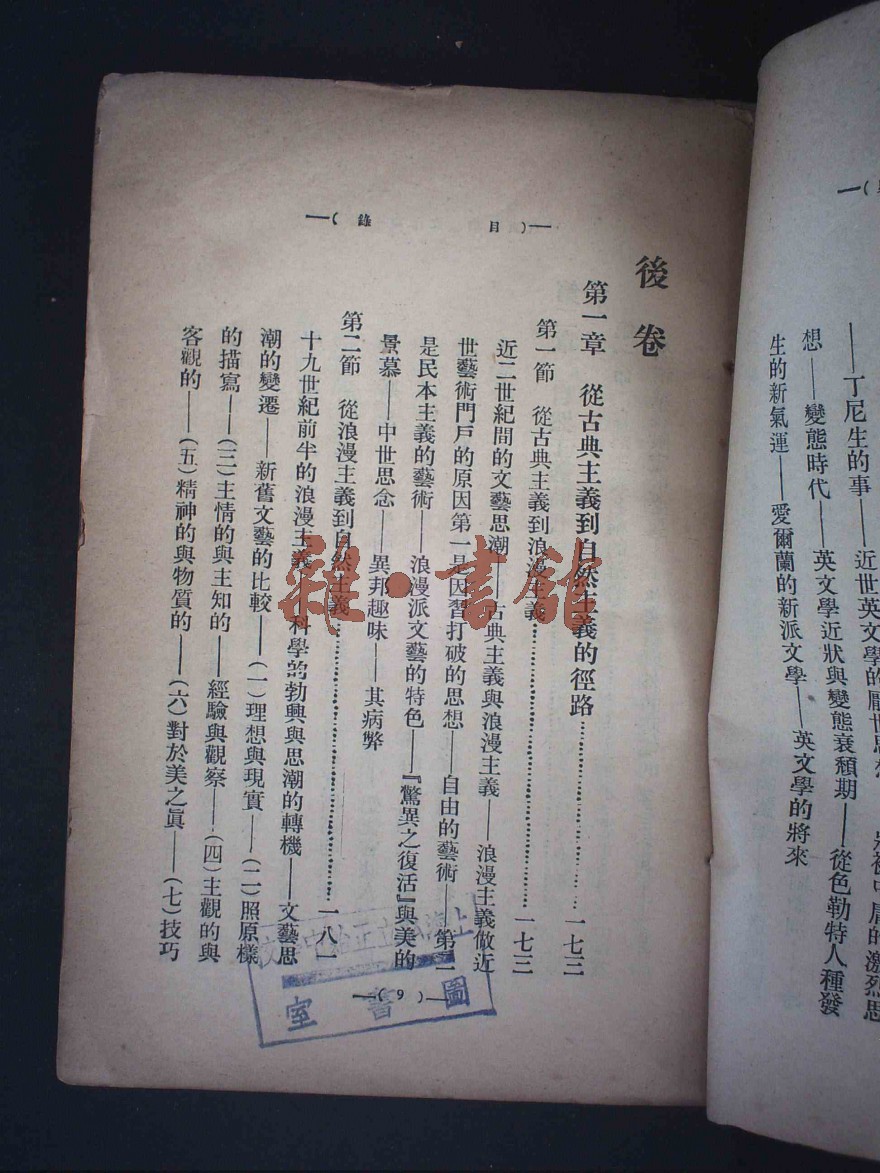 ——丁尼生的事——近世英文學的厭世思想
想——變態時代——英文學近狀與變態衰頹期——從色勒特人種發
生的新氣運——愛爾蘭的新派文學——英文學的將來
目 錄
後卷
第一章 從古典主義到自然主義的徑路 一七三
第一節 從古典主義到浪漫主義 一七三
近二世紀間的文藝思潮——古典主義與浪漫主義——浪漫主義倣近
世藝術門戶的原因第一是因習打破的思想——自由的藝術——第二
是民本主義的藝術——浪漫派文藝的特色——『驚異之復活』與美的
景慕——中世思念——異邦趣味——其病弊
第二節 從浪漫主義到自然主義 一八一
十九世紀前半的浪漫主義——科學的勃興與思潮的轉機——文藝思
潮的變遷——新舊文藝的比較——(一)理想與現實——(二)照原樣
的描寫——(三)主情的與主知的——經驗與觀察——(四)主觀的與
客觀的——(五)精神的與物質的——(六)對於美之眞——(七)技巧
(9)
圖書室
雜·書舘